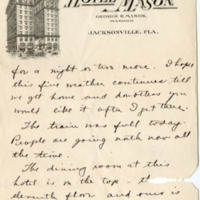 HOTEL MASON
GEORGE H. MASON,
MANAGER
JACKSONVILLE, FLA.
for a night or two more. I hope
this fine weather continues till
we get home and doubtless you
would like it after I get there.
The train was full today.
People are going north now all
the time.
The dining room at this
hotel is on the top - the
eleventh floor and ours is